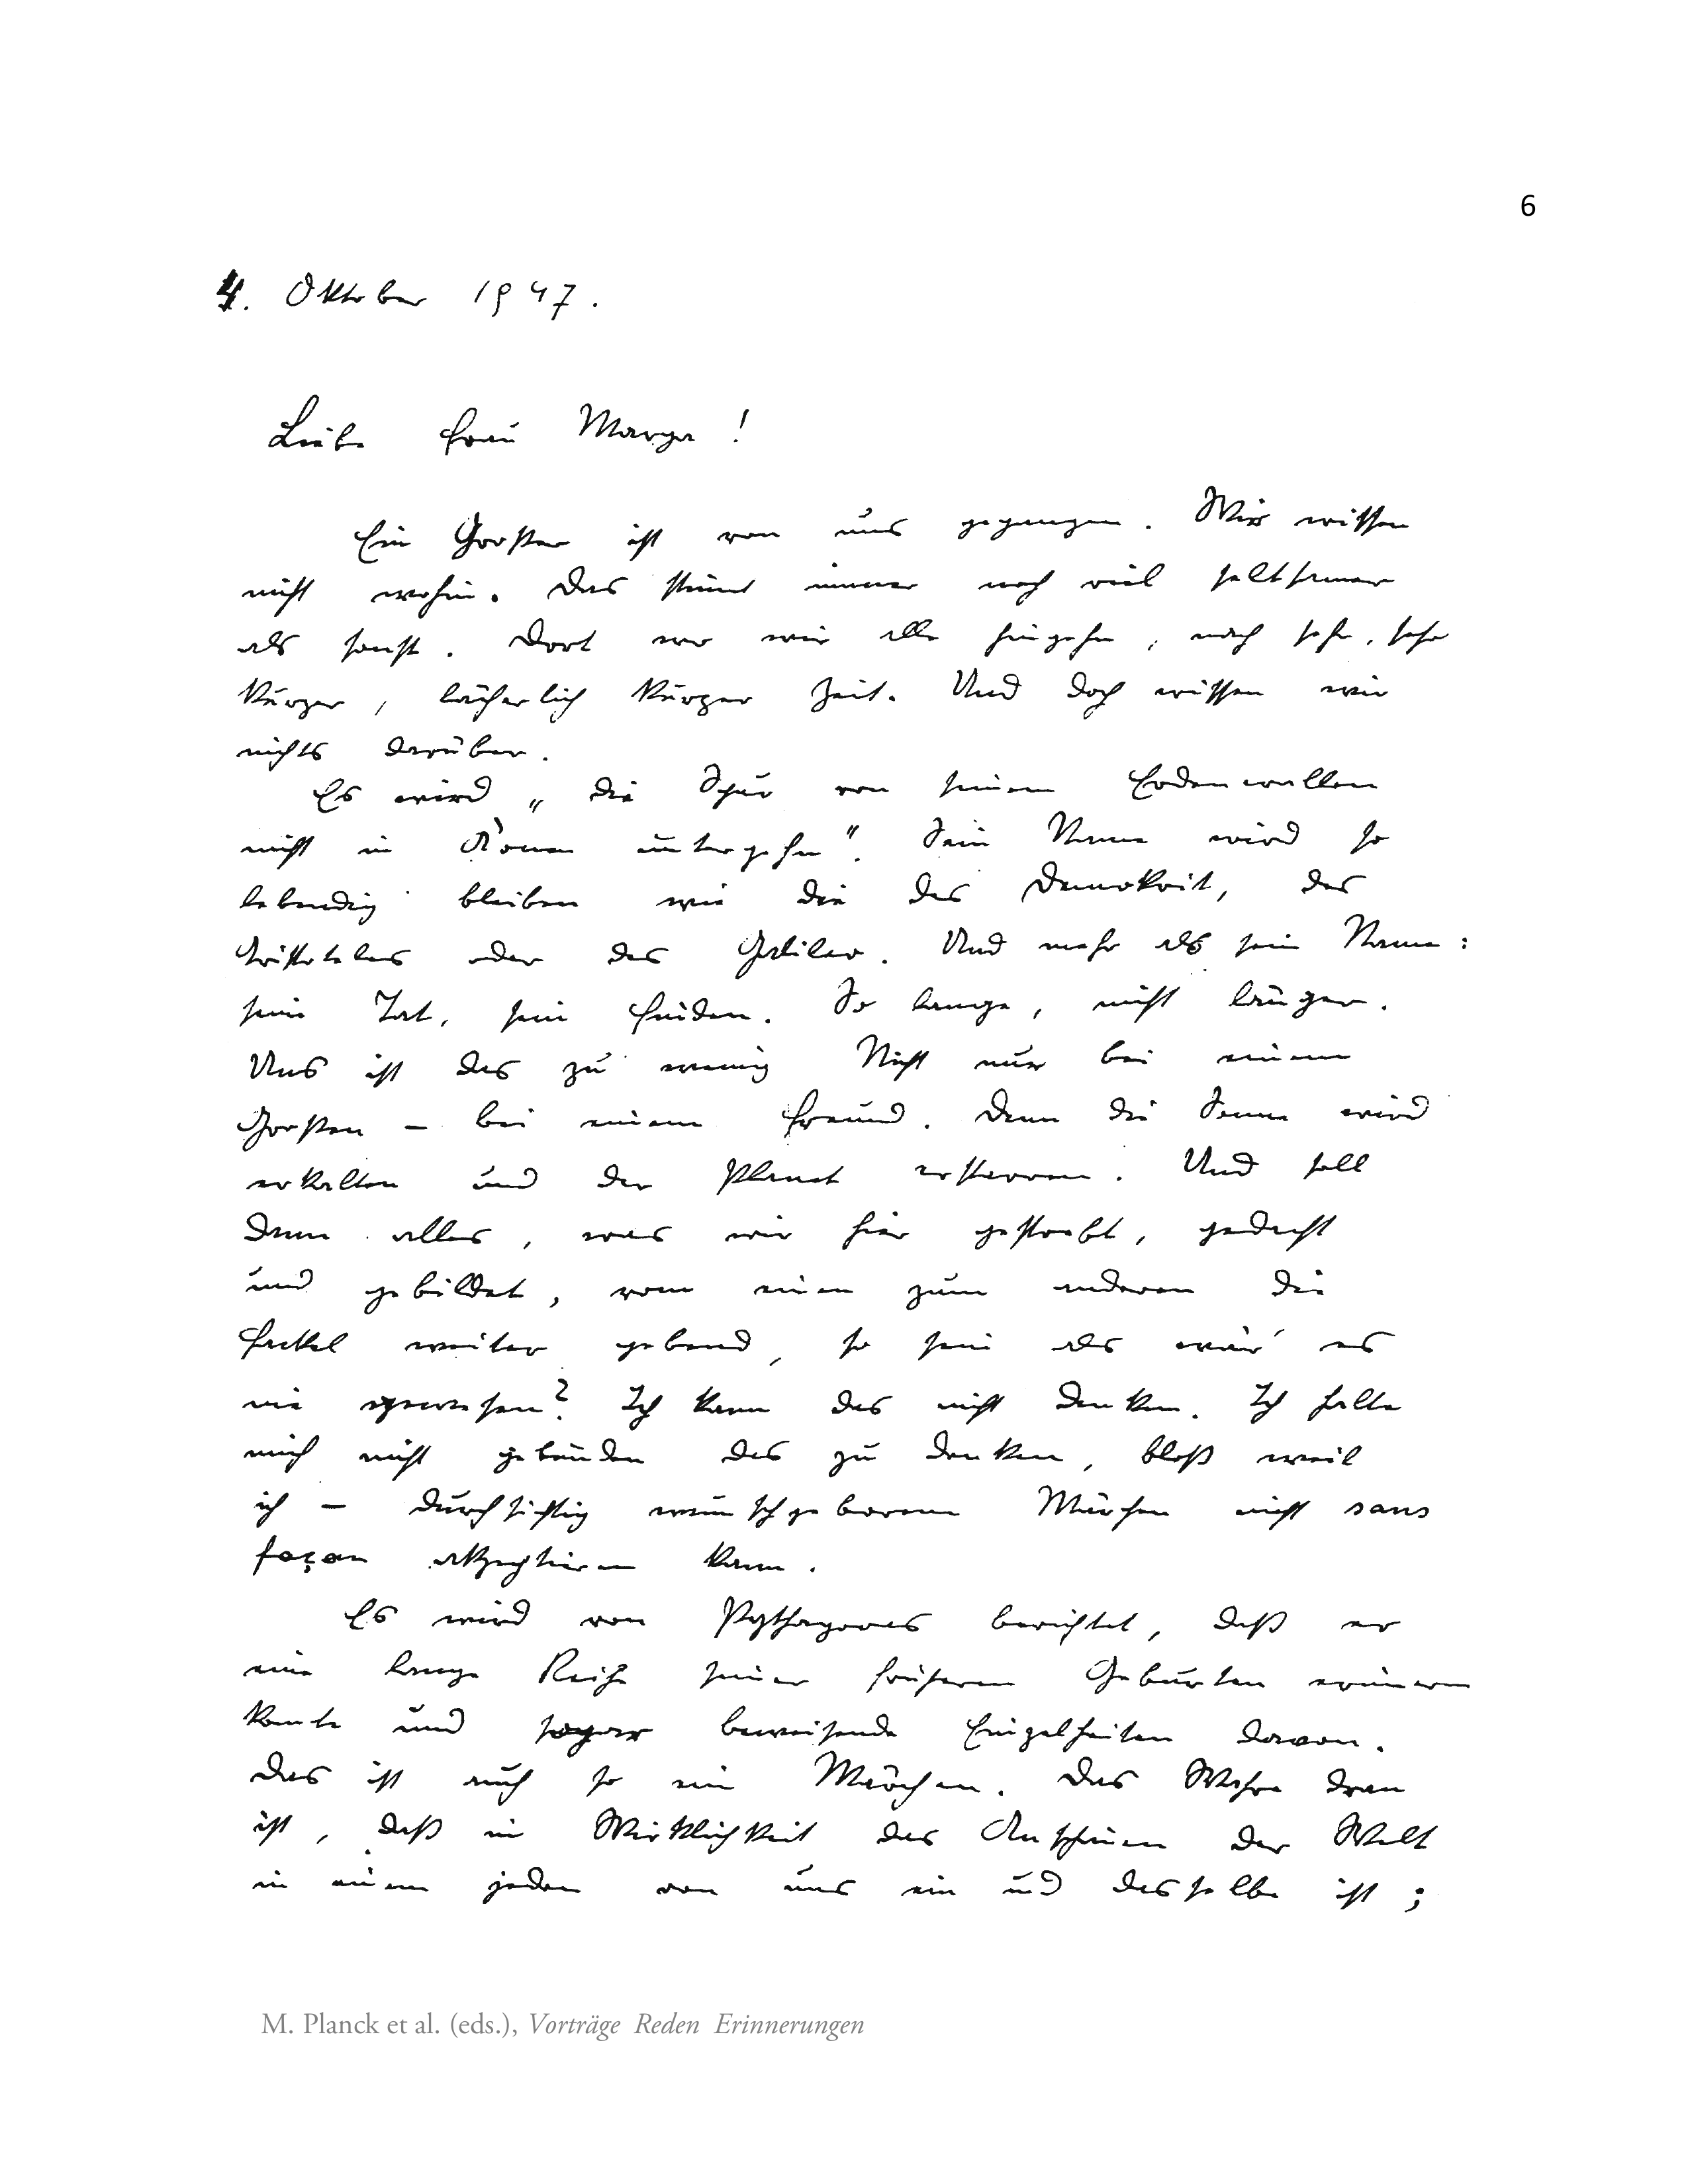 6
4. Oktober 1947.
Liebe Frau Marga!
Ein Grosser ist von uns gegangen. Wir wissen
nicht wohin. Das stimmt immer noch viel seltsamer
als sonst. Dort wo wir alle hingehn, nach sehr, sehr
kurzer, lächerlich kurzer Zeit. Und doch wissen wir
nichts darüber.
Es wird „die Spur von seinem Erdenwallen
nicht in Äonen untergehn". Sein Name wird so
lebendig bleiben wie die des Demokrit, des
Aristoteles oder des Galilei. Und mehr als sein Name:
seine Tat, sein Finden. So lange, nicht länger.
Uns ist das zu wenig Nicht nur bei einem
Grossen – bei einem Freund. Denn die Sonne wird
erkalten und der Planet erstarren. Und soll
dann alles, was wir hier gestrebt, gedacht
und gebildet, vom einen zum anderen die
Fackel weiter gebend, so sein als wär' es
nie gewesen? Ich kann das nicht denken. Ich halte
mich nicht gebunden das zu denken, bloß weil
ich – durchsichtig wunschgeborene Märchen nicht sans
façon akzeptieren kann.
Es wird von Pythagoras berichtet, daß er
eine lange Reihe seiner früheren Geburten erinnern
konnte und sogar beweisende Einzelheiten davon.
Das ist auch so ein Märchen. Das Wahre dran
ist, daß in Wirklichkeit das Anschauen der Welt
in einem jeden von uns ein und dasselbe ist;
M. Planck et al. (eds.), Vorträge Reden Erinnerungen